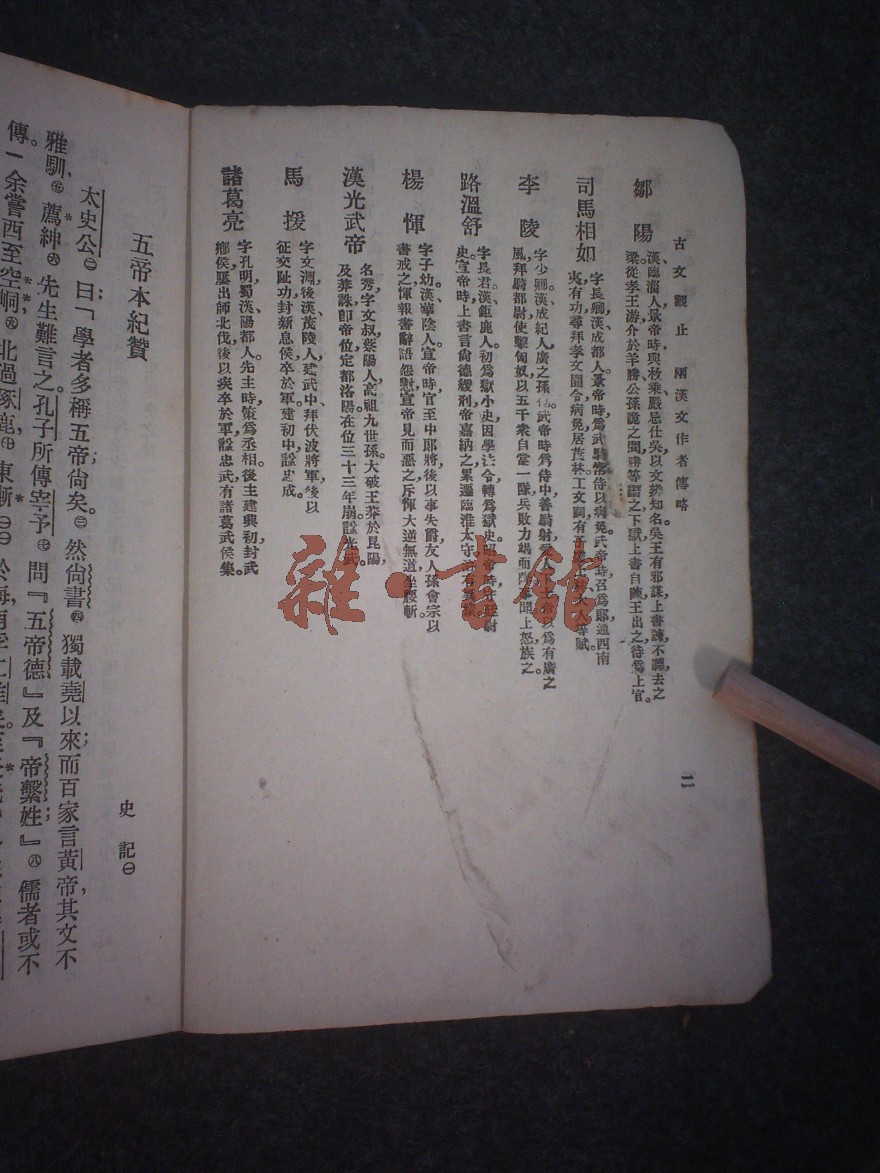 古文觀止 兩漢文作者傳略
二
鄒陽
漢、臨淄人、景帝時與枚乘、嚴忌仕吳、以文辯知名。吳王有邪謀、上書諫、不聽、去之
梁、從孝王游、介於羊勝公孫詭之間、勝等譖之下獄、上書自陳、王出之、待爲上官。
司馬相如
字長卿、漢成都人。景帝時爲武騎常侍、以病免。武帝時召爲郎、通西南
夷、有功、尋拜孝文園令、病免、居茂林、工文詞、有
李陵
字少卿、漢成紀人、廣之孫。武帝時爲侍中、善騎射、愛人下士、帝以爲有廣之
風、拜騎都尉、使擊匈奴、以五千衆自當一隊、兵敗力竭而降、事聞、上怒族之。
路溫舒
字長君。漢鉅鹿人、初爲獄小吏、因學法令、轉爲獄史。昭帝時守廷尉
史。宣帝時上書言尙德緩刑、帝嘉納之、累遷臨淮太守、治有異
楊惲
字子幼、漢華陰人、宣帝時、官至中郎將、後以事失爵、友人孫會宗以
書戒之、惲報書辭語怨懟、宣帝見而惡之、斥惲大逆無道、坐腰斬。
漢光武帝
名秀、字文叔、蔡陽人、高祖九世孫。大破王莽於昆陽、
及莽誅、卽帝位、定都洛陽、在位三十三年崩、諡光武。
馬援
字文淵、後漢茂陵人、建武中、拜伏波將軍、後以
征交趾功、封新息侯、卒於軍、建初中諡忠成。
諸葛亮
字孔明、蜀漢陽都人。先主時、策爲丞相。後主建興初、封武
鄉侯、屢出師北伐、後以疾卒於軍、諡忠武、有諸葛武侯集。
史記㊀
五帝本紀贊
太史公㊁曰:「學者多稱五帝尙矣。㊂然尙書㊃獨載堯以來;而百家言黃帝、其文不
雅馴、㊄薦紳㊅先生難言之。孔子所傳宰予㊆問『五帝德』及『帝繫姓』;㊇儒者或不
傳。余嘗西至空峒㊈、北過涿鹿、㊉東漸於海、南浮江淮矣。